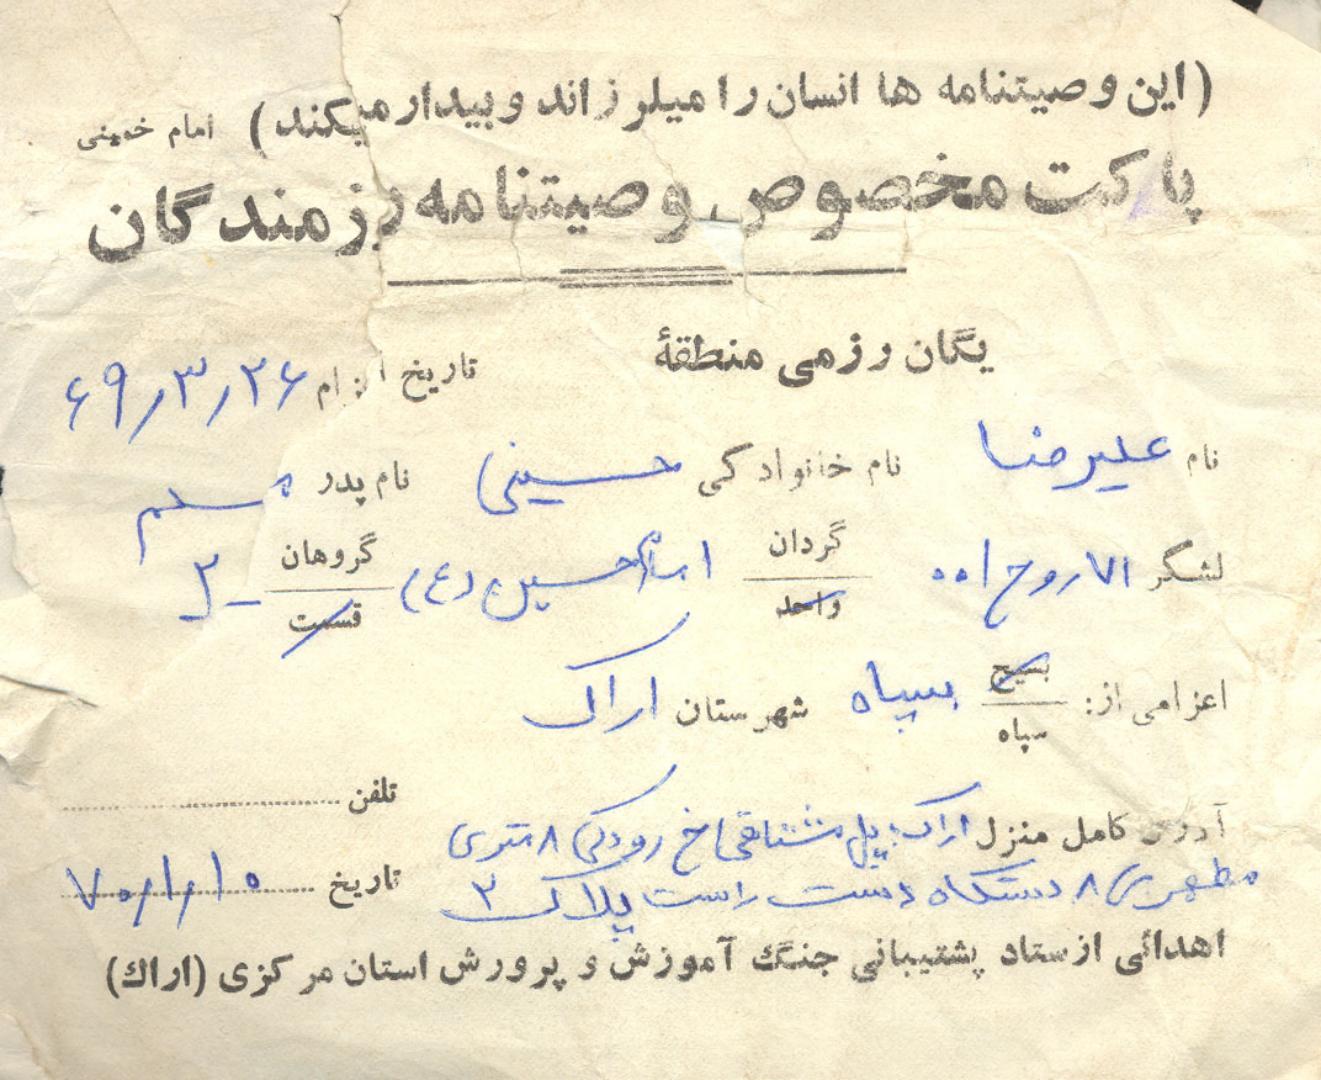 (این وصیتنامه ها انسان را میلرزاند و بیدار میکند) امام خمینی
پاکت مخصوص وصیتنامه رزمندگان
یگان رزمی منطقهٔ
تاریخ اعزام ۶۹٫۳٫۲۶
نام علیرضا نام خانوادگی حسینی نام پدر مسلم
لشگر ۷۱ روح ا.. گردان امام حسین (ع) گروهان ۳
واحد قسمت
اعزامی از: بسیج سپاه شهرستان اراک
سپاه
تلفن
آدرس کامل منزل اراک پل مشتاقی خ رودکی ۸ متری
مطهری ۸ دستگاه دست راست پلاک ۲
تاریخ ۷۰٫۱٫۱۰
اهدائی از ستاد پشتیبانی جنگ آموزش و پرورش استان مرکزی (اراک)